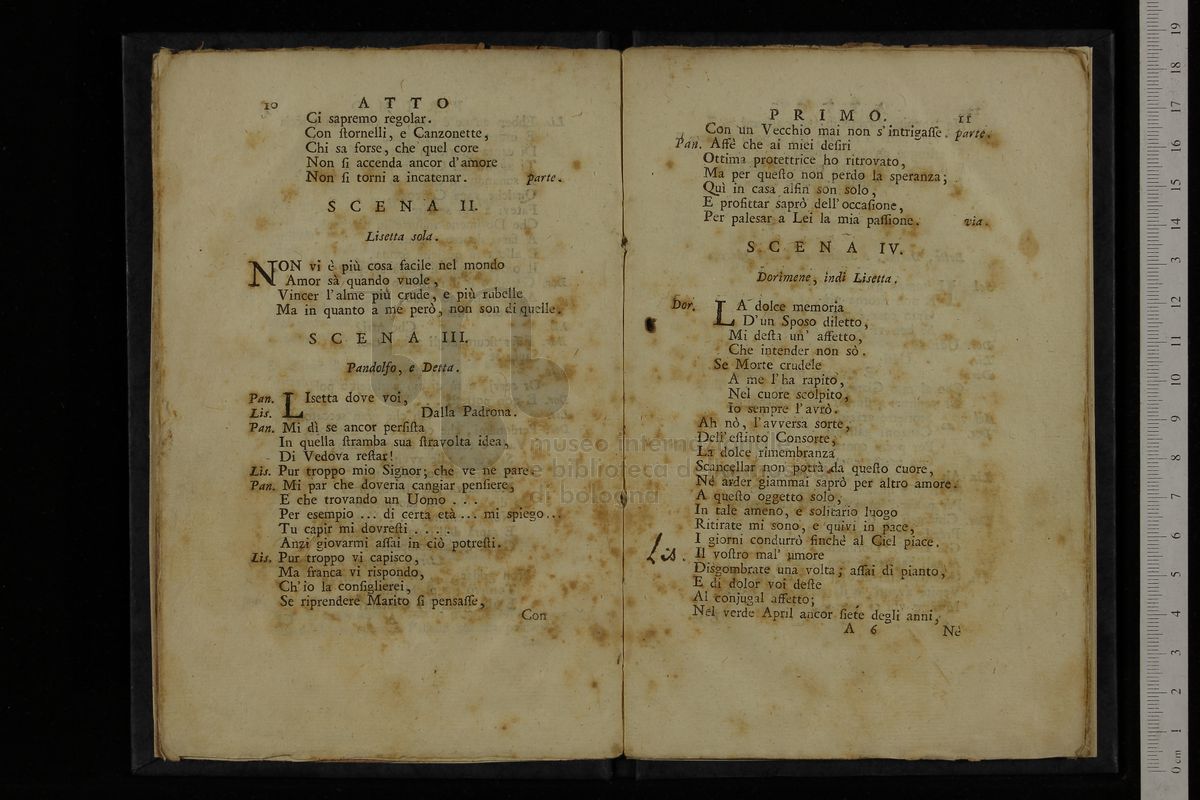 10 ATTO
Ci sapremo regolar.
Con ſtornelli, e Canzonette,
Chi sa forse, che quel core
Non ſi accenda ancor d'amore
Non ſi torni a incatenar. parte.
SCENA II.
Lisetta sola.
NON vi è più cosa facile nel mondo
Amor sà quando vuole,
Vincer l'alme più crude, e più rubelle
Ma in quanto a me però, non son di quelle.
SCENA III.
Pandolfo, e Detta.
Pan. Lisetta dove voi,
Lis. Dalla Padrona.
Pan. Mi dì se ancor perſiſta
In quella ſtramba sua ſtravolta idea,
Di Vedova reſtar!
Lis. Pur troppo mio Signor; che ve ne pare.
Pan. Mi par che doveria cangiar penſiere,
E che trovando un Uomo . . .
Per esempio ... di certa età ... mi spiego...
Tu capir mi dovreſti . . . .
Anzi giovarmi aſſai in ciò potreſti.
Lis. Pur troppo vi capisco,
Ma franca vi rispondo,
Ch'io la conſiglierei,
Se riprendere Marito ſi pensaſſe,
Con
PRIMO. 11
Con un Vecchio mai non s'intrigaſſe. parte.
Pan. Affè che ai miei deſiri
Ottima protettrice ho ritrovato,
Ma per queſto non perdo la speranza;
Quì in casa alfin son solo,
E profittar saprò dell'occaſione,
Per palesar a Lei la mia paſſione. via.
SCENA IV.
Dorimene, indi Lisetta.
Dor. LA dolce memoria
D'un Sposo diletto,
Mi deſta un' affetto,
Che intender non sò.
Se Morte crudele
A me l'ha rapito,
Nel cuore scolpito,
Io sempre l'avrò.
Ah nò, l'avversa sorte,
Dell'eſtinto Consorte,
La dolce rimembranza
Scancellar non potrà da queſto cuore,
Nè arder giammai saprò per altro amore.
A queſto oggetto solo,
In tale ameno, e solitario luogo
Ritirate mi sono, e quivi in pace,
I giorni condurrò finchè al Ciel piace.
Lis. Il voſtro mal' umore
Disgombrate una volta; aſſai di pianto,
E di dolor voi deſte
Al conjugal affetto;
Nel verde April ancor ſiete degli anni,
A 6 Nè
museo internazionale
e biblioteca della musica
di bologna
0 cm 1 2 3 4 5 6 7 8 9 10 11 12 13 14 15 16 17 18 19